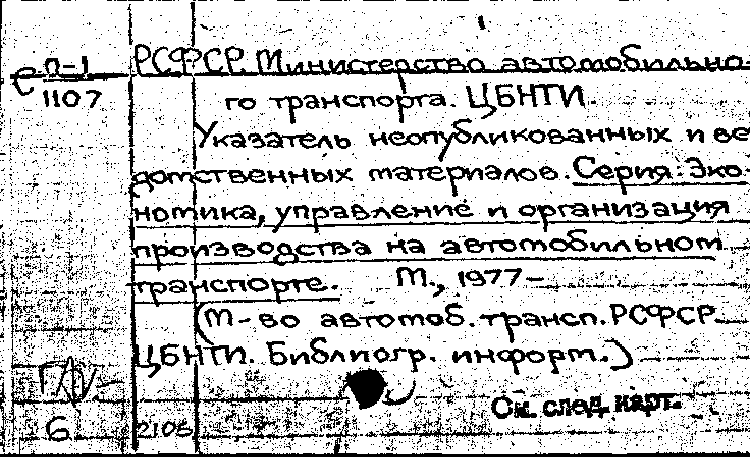 С П-1
1107
РСФСР. Министерство автомобильно-
го транспорта. ЦБНТИ.
Указатель неопубликованных и ве
домственных материалов. Серия: Эко-
номика, управление и организация
производства на автомобильном
транспорте. М., 1977-
(М-во автомоб. трансп. РСФСР.
ЦБНТИ. Библиогр. информ.)
См. след. карт.
6 2105